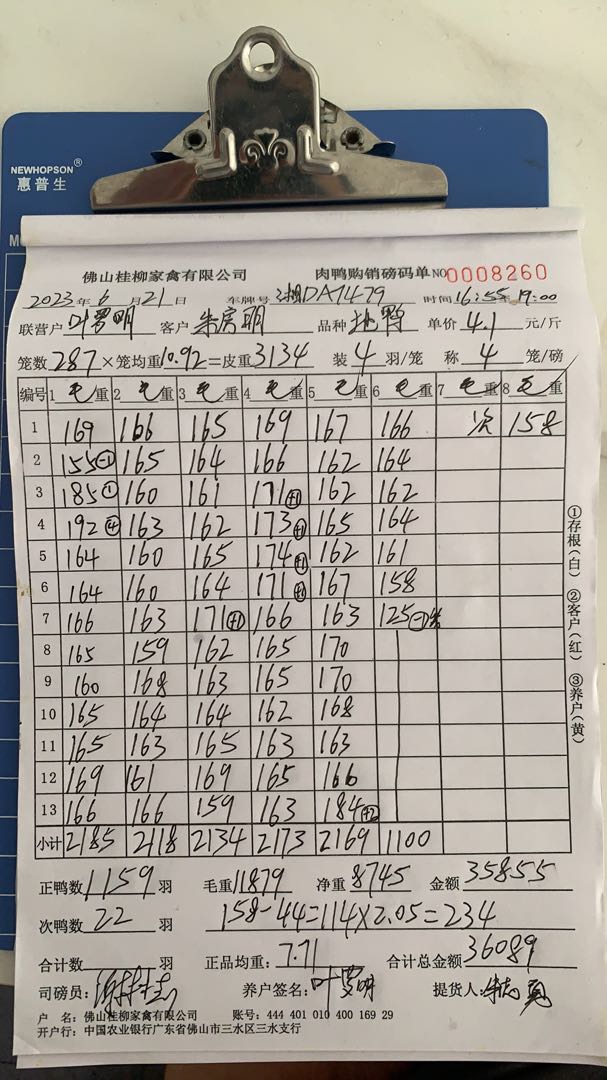 NEWHOPSON®
惠普生
佛山桂柳家禽有限公司 肉鸭购销磅码单 NO 0008260
2023年 6月 21日 车牌号 湘DA7479 时间 16:55 17:00
联营户 叶罗明 客户 品种 单价 4.1 元/斤
笼数 287 ×笼均重 10.92 =皮重 3134 装 4 羽/笼 称 4 笼/磅
编号 1 毛重 2 毛重 3 毛重 4 毛重 5 毛重 6 毛重 7 毛重 8 毛重
1 169 166 165 169 167 166 次 158
2 155 -1 165 164 166 162 164
3 185 160 161 171 +1 162 162
4 192 163 162 173 +1 165 164
5 164 160 165 174 +1 162 161
6 164 160 164 171 +1 167 158
7 166 163 171 +1 166 163 125
8 165 159 162 165 170
9 160 168 163 165 170
10 165 164 164 162 168
11 165 163 165 163 163
12 169 161 169 165 166
13 166 166 159 163 184 +2
小计 2185 2118 2134 2173 2169 1100
正鸭数 1159 羽 毛重 11879 净重 8745 金额 35855
次鸭数 22 羽 158-44=114×2.05=234
合计数 羽 正品均重: 7.71 合计总金额 36089
司磅员: 养户签名: 叶罗明 提货人:
户 名: 佛山桂柳家禽有限公司 账号: 444 401 010 400 169 29
开户行: 中国农业银行广东省佛山市三水区三水支行
①存根(白) ②客户(红) ③养户(黄)